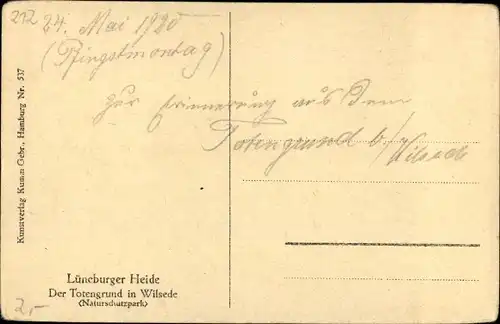 212
24. Mai 1920
(Pfingstmontag)
zur Erinnerung aus dem
Totengrund b/ Wilsede
Kunstverlag Kumm Gebr., Hamburg Nr. 537
Lüneburger Heide
Der Totengrund in Wilsede
(Naturschutzpark)
2,-